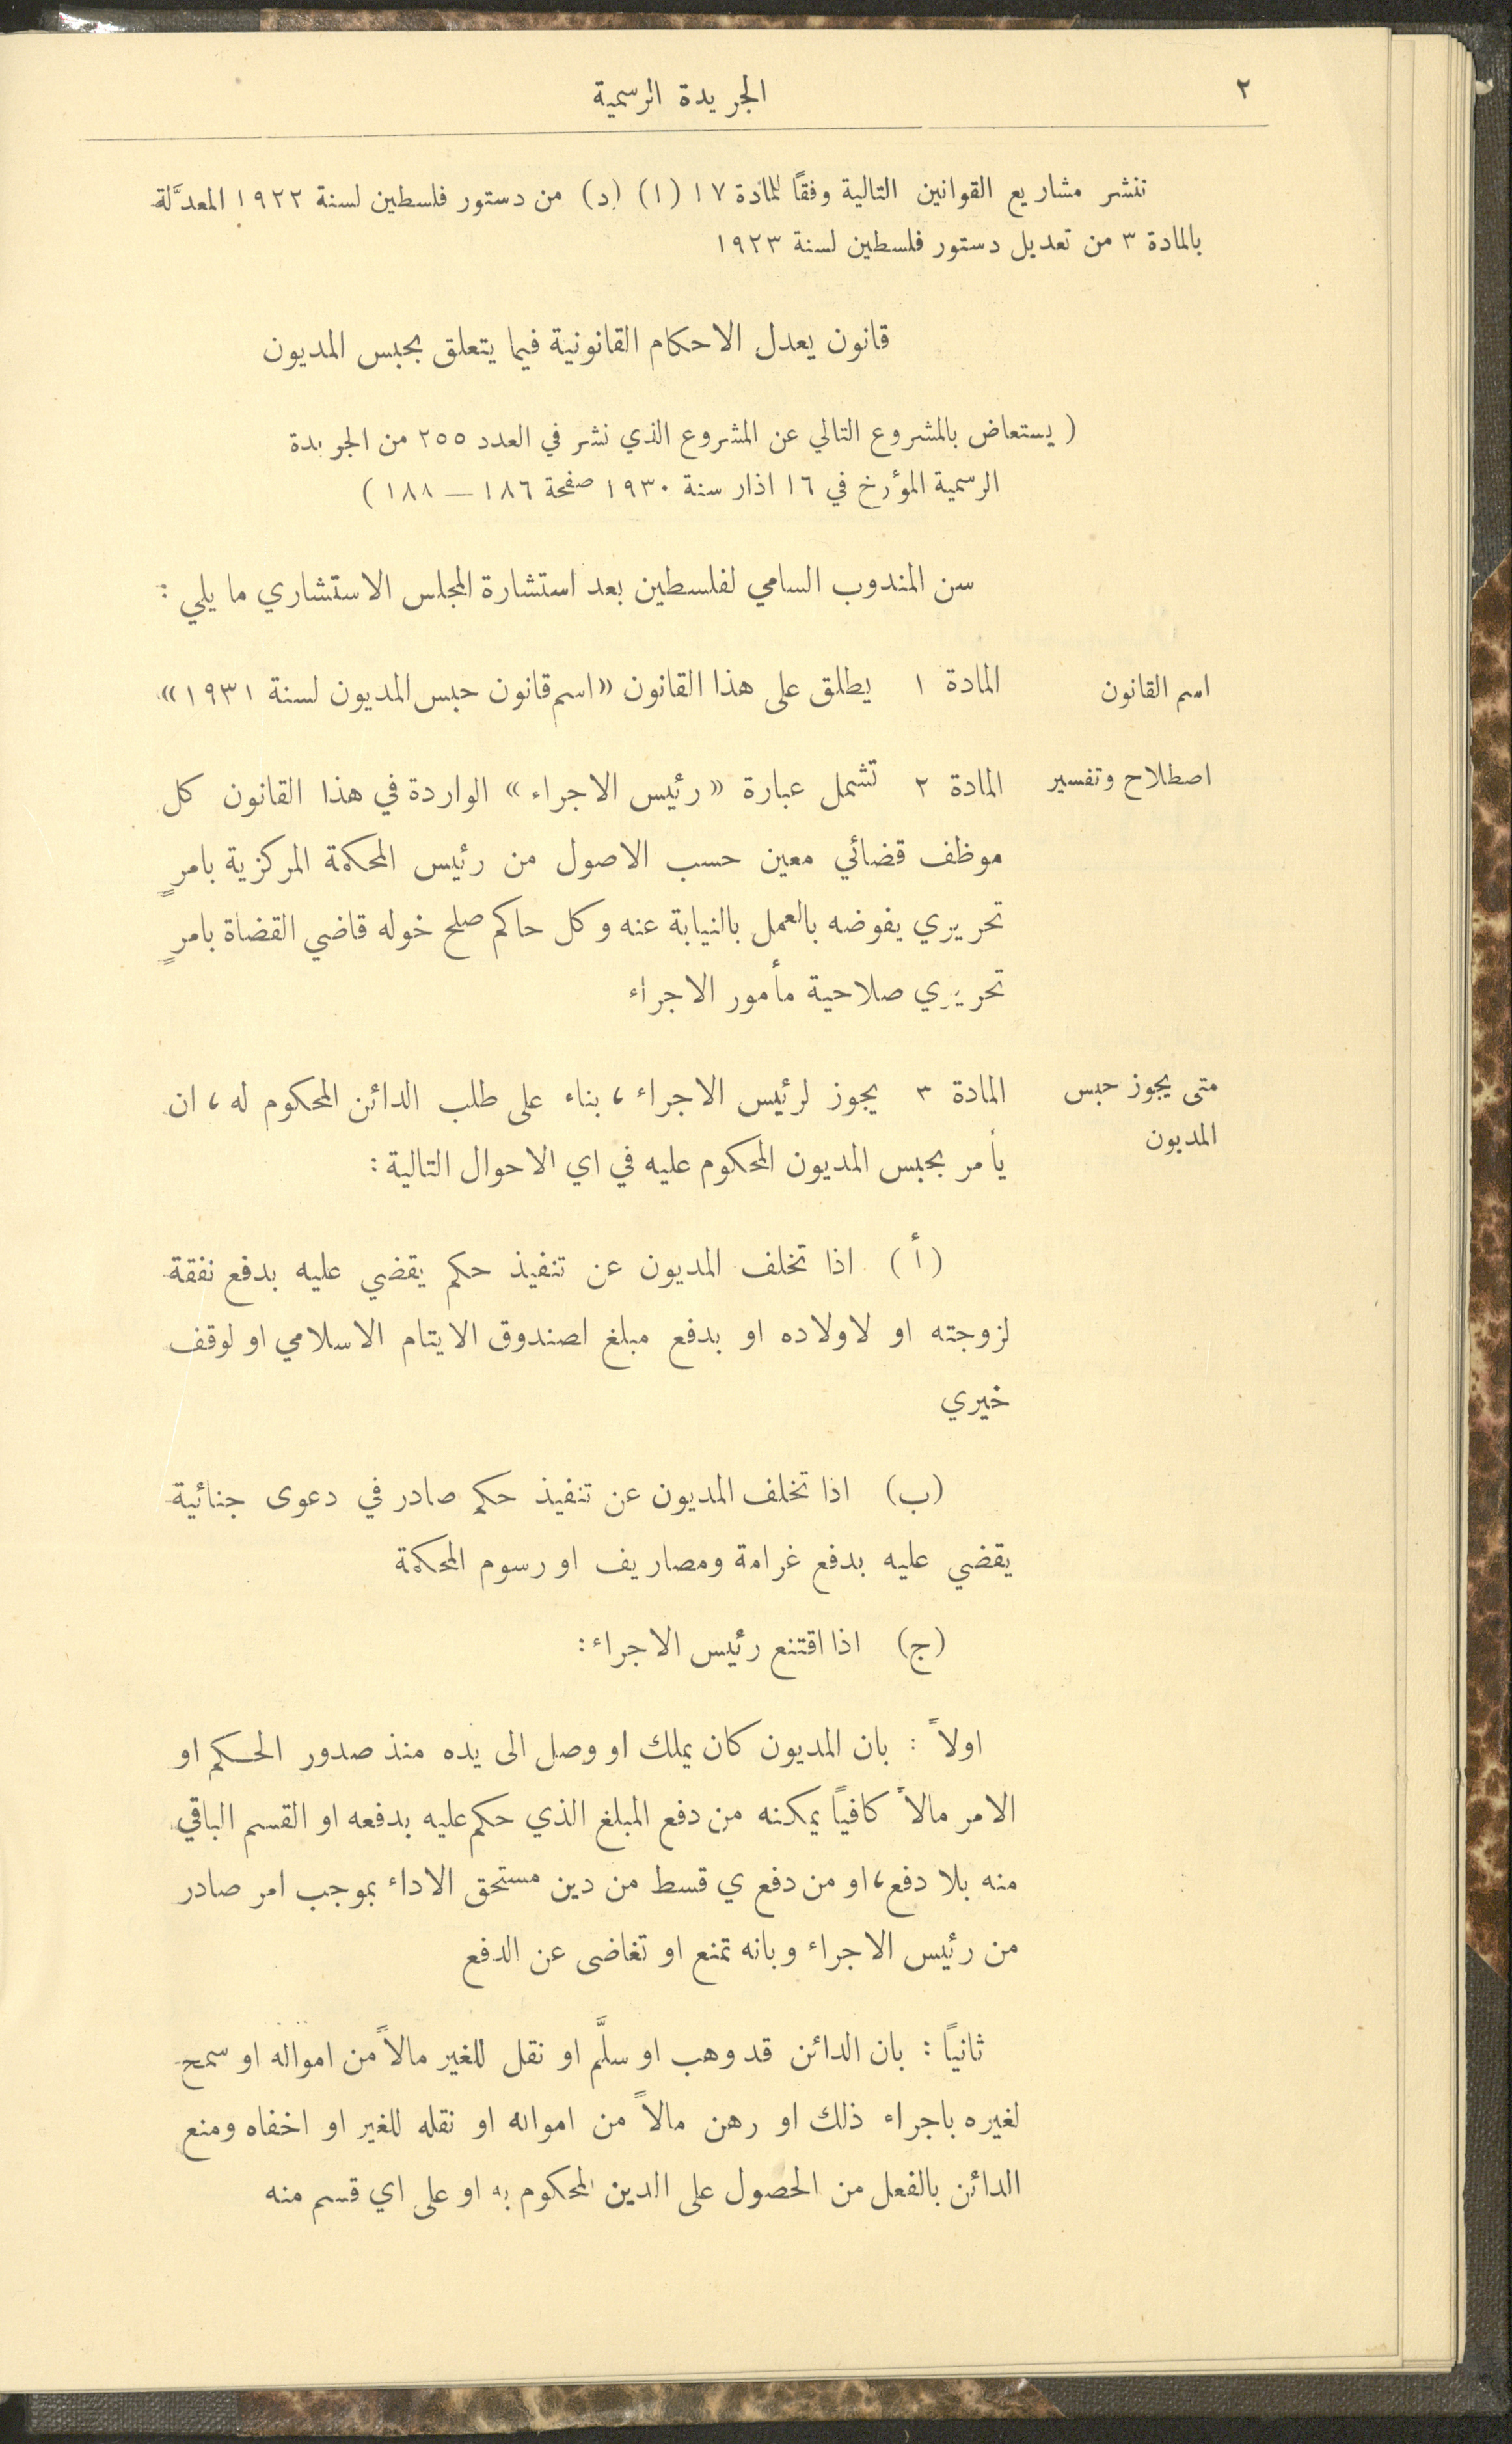 ٢
الجريدة الرسمية
تنشر مشاريع القوانين التالية وفقاً للمادة ١٧ (١) (د) من دستور فلسطين لسنة ١٩٢٢ المعدَّلة
بالمادة ٣ من تعديل دستور فلسطين لسنة ١٩٢٣
قانون يعدل الاحكام القانونية فيما يتعلق بحبس المديون
( يستعاض بالمشروع التالي عن المشروع الذي نشر في العدد ٢٥٥ من الجريدة
الرسمية المؤرخ في ١٦ اذار سنة ١٩٣٠ صفحة ١٨٦ — ١٨٨ )
سن المندوب السامي لفلسطين بعد استشارة المجلس الاستشاري ما يلي :
اسم القانون
المادة ١ يطلق على هذا القانون «اسم قانون حبس المديون لسنة ١٩٣١»
اصطلاح وتفسير
المادة ٢ تشمل عبارة «رئيس الاجراء» الواردة في هذا القانون كل
موظف قضائي معين حسب الاصول من رئيس المحكمة المركزية بامرٍ
تحريري يفوضه بالعمل بالنيابة عنه وكل حاكم صلح خوله قاضي القضاة بامرٍ
تحريري صلاحية مأمور الاجراء
متى يجوز حبس
المديون
المادة ٣ يجوز لرئيس الاجراء ، بناء على طلب الدائن المحكوم له ، ان
يأمر بحبس المديون المحكوم عليه في اي الاحوال التالية :
(أ) اذا تخلف المديون عن تنفيذ حكم يقضي عليه بدفع نفقة
لزوجته او لاولاده او بدفع مبلغ لصندوق الايتام الاسلامي او لوقف
خيري
(ب) اذا تخلف المديون عن تنفيذ حكم صادر في دعوى جنائية
يقضي عليه بدفع غرامة ومصاريف او رسوم المحكمة
(ج) اذا اقتنع رئيس الاجراء :
اولاً : بان المديون كان يملك او وصل الى يده منذ صدور الحكم او
الامر مالاً كافياً يمكنه من دفع المبلغ الذي حكم عليه بدفعه او القسم الباقي
منه بلا دفع ، او من دفع ي قسط من دين مستحق الاداء بموجب امر صادر
من رئيس الاجراء وبانه تمنع او تغاضى عن الدفع
ثانياً : بان الدائن قد وهب او سلَّم او نقل للغير مالاً من امواله او سمح
لغيره باجراء ذلك او رهن مالاً من امواله او نقله للغير او اخفاه ومنع
الدائن بالفعل من الحصول على الدين المحكوم به او على اي قسم منه